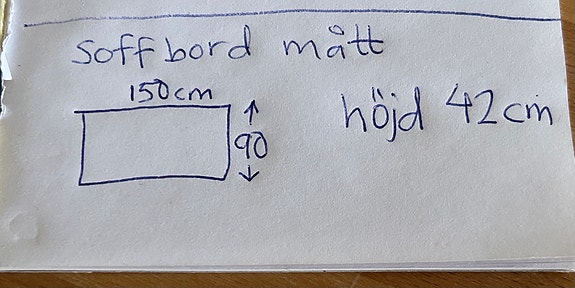 Soffbord mått
150cm
90
höjd 42cm